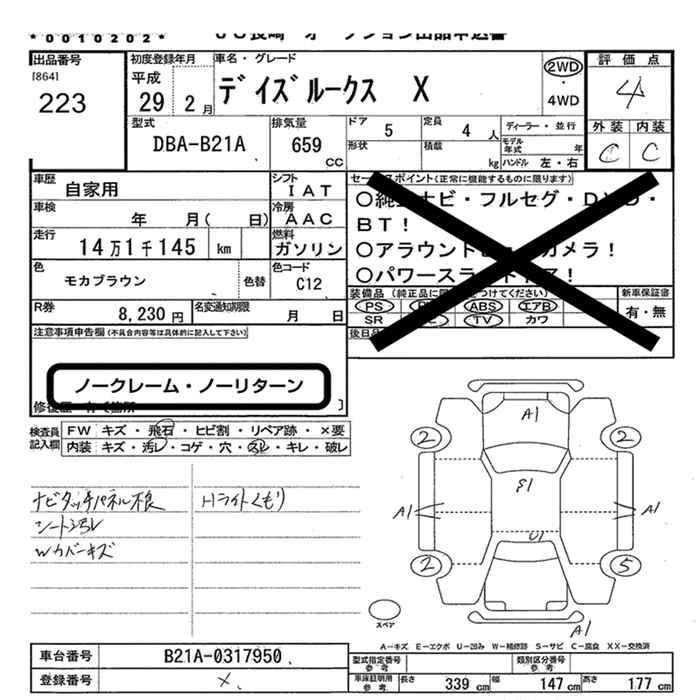 *0010202*
出品番号
[864]
223
初度登録年月
平成
29 2月
車名・グレード
デイズルークス X
2WD
・
4WD
評価点
4
外装 内装
C C
型式
DBA-B21A
排気量
659
CC
ドア
5
定員
4人
形状
積載
kg
ディーラー・並行
モデル
年式 年
ハンドル 左・右
車歴
自家用
シフト
IAT
車検
年 月( 日)
冷房
AAC
走行
14万1千145 km
燃料
ガソリン
色
モカブラウン
色替
色コード
C12
R券
8,230円
名変通知期限
月 日
セールスポイント(正常に機能するものに限ります)
BT!
○パワースラ
装備品
PS
ABS
エアB
SR
TV
カワ
新車保証書
有・無
後日品
注意事項申告欄(不具合内容等は具体的に記入して下さい)
ノークレーム・ノーリターン
検査員
記入欄
FW キズ・飛石・ヒビ割・リペア跡・×要
内装 キズ・汚レ・コゲ・穴・スレ・キレ・破レ
ナビタッチパネル不良
シート汚レ
Wカバーキズ
Hライトくもり
A1
2
2
E1
A1
A1
U1
2
5
A1
スペア
A-キズ E-エクボ U-凹み W-補修跡 S-サビ C-腐食 XX-交換済
車台番号
B21A-0317950
登録番号
×
型式指定番号
参考
類別区分番号
参考
車庫証明用
参考
長さ 339 cm
幅 147 cm
高さ 177 cm